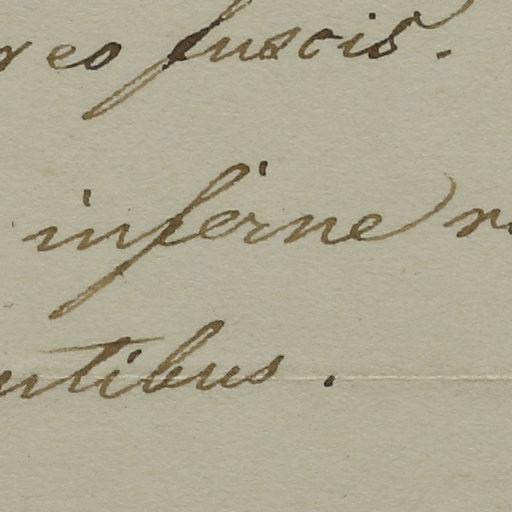 reo fuscis.
inferne r
ntibus.